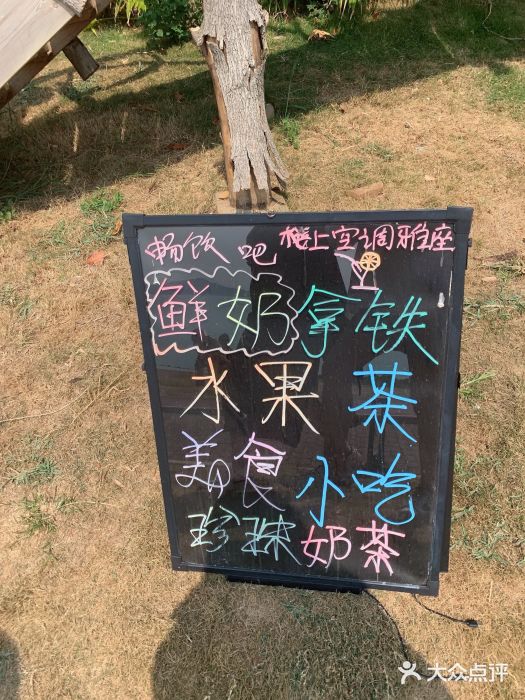 畅饮吧 楼上空调雅座
鲜奶拿铁
水果茶
美食小吃
珍珠奶茶
大众点评